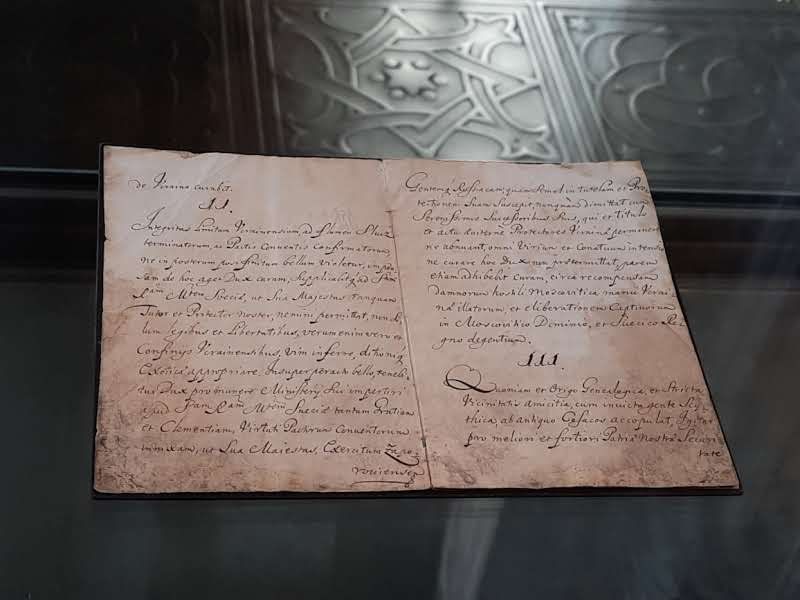 de Ucraina curabit.
II.
Integritas Limitum Ucrainensium ad flumen Sluiz
terminatorum, ac Pactis Conventis Confirmatorum,
ne in posterum post finitum bellum Violetur,
eam de hoc aget Dux curam, Supplicabitq; ad Sam
Ram Mtem Sveciæ, ut Sua Majestas tanquam
Tutor et Protector Noster, nemini permittat, non so-
lum Legibus et Libertatibus, verumenimvero et
Confinys Ucrainensibus, vim inferre, ditionemq;
Exotica appropriare. Insuper peracto bello, tenebi-
tur Dux pro munere Ministery Sui impertiri
apud Sam Ram Mtem Sueciæ tantum Gratiam
et Clementiam, Virtuti Pactorum Conventorum
innixam, ut Sua Maiestas, Exercitum Zapo-
roviensem
Gentemq; Rossiacam; quam semel in tutelam et Pro-
tectionem Suam Suscepit, nunquam dimittat cum
Serenissimis Successoribus Suis, qui et titulo
et actu æuterne Protectores Ucrainæ permanere
ne abnuant, omni Virium et Conatuum intensio-
ne curare hoc Dux non prætermittat, parem
etiam adhibebit Curam, circa recompensam
damnorum hostili Moscovitica manu Ucrai-
næ illatorum, et eliberationem Captivorum
in Moscovitico Dominio, et Suecico Re-
gno degentium.
III.
Quoniam et Origo Genealogica, et Stricta
Vicinitatis amicitia, cum invicta gente Scy-
thica, ab antiquo Cosacos accopulat, Igitur
pro meliori et fortiori Patriæ Nostræ Securi-
tate